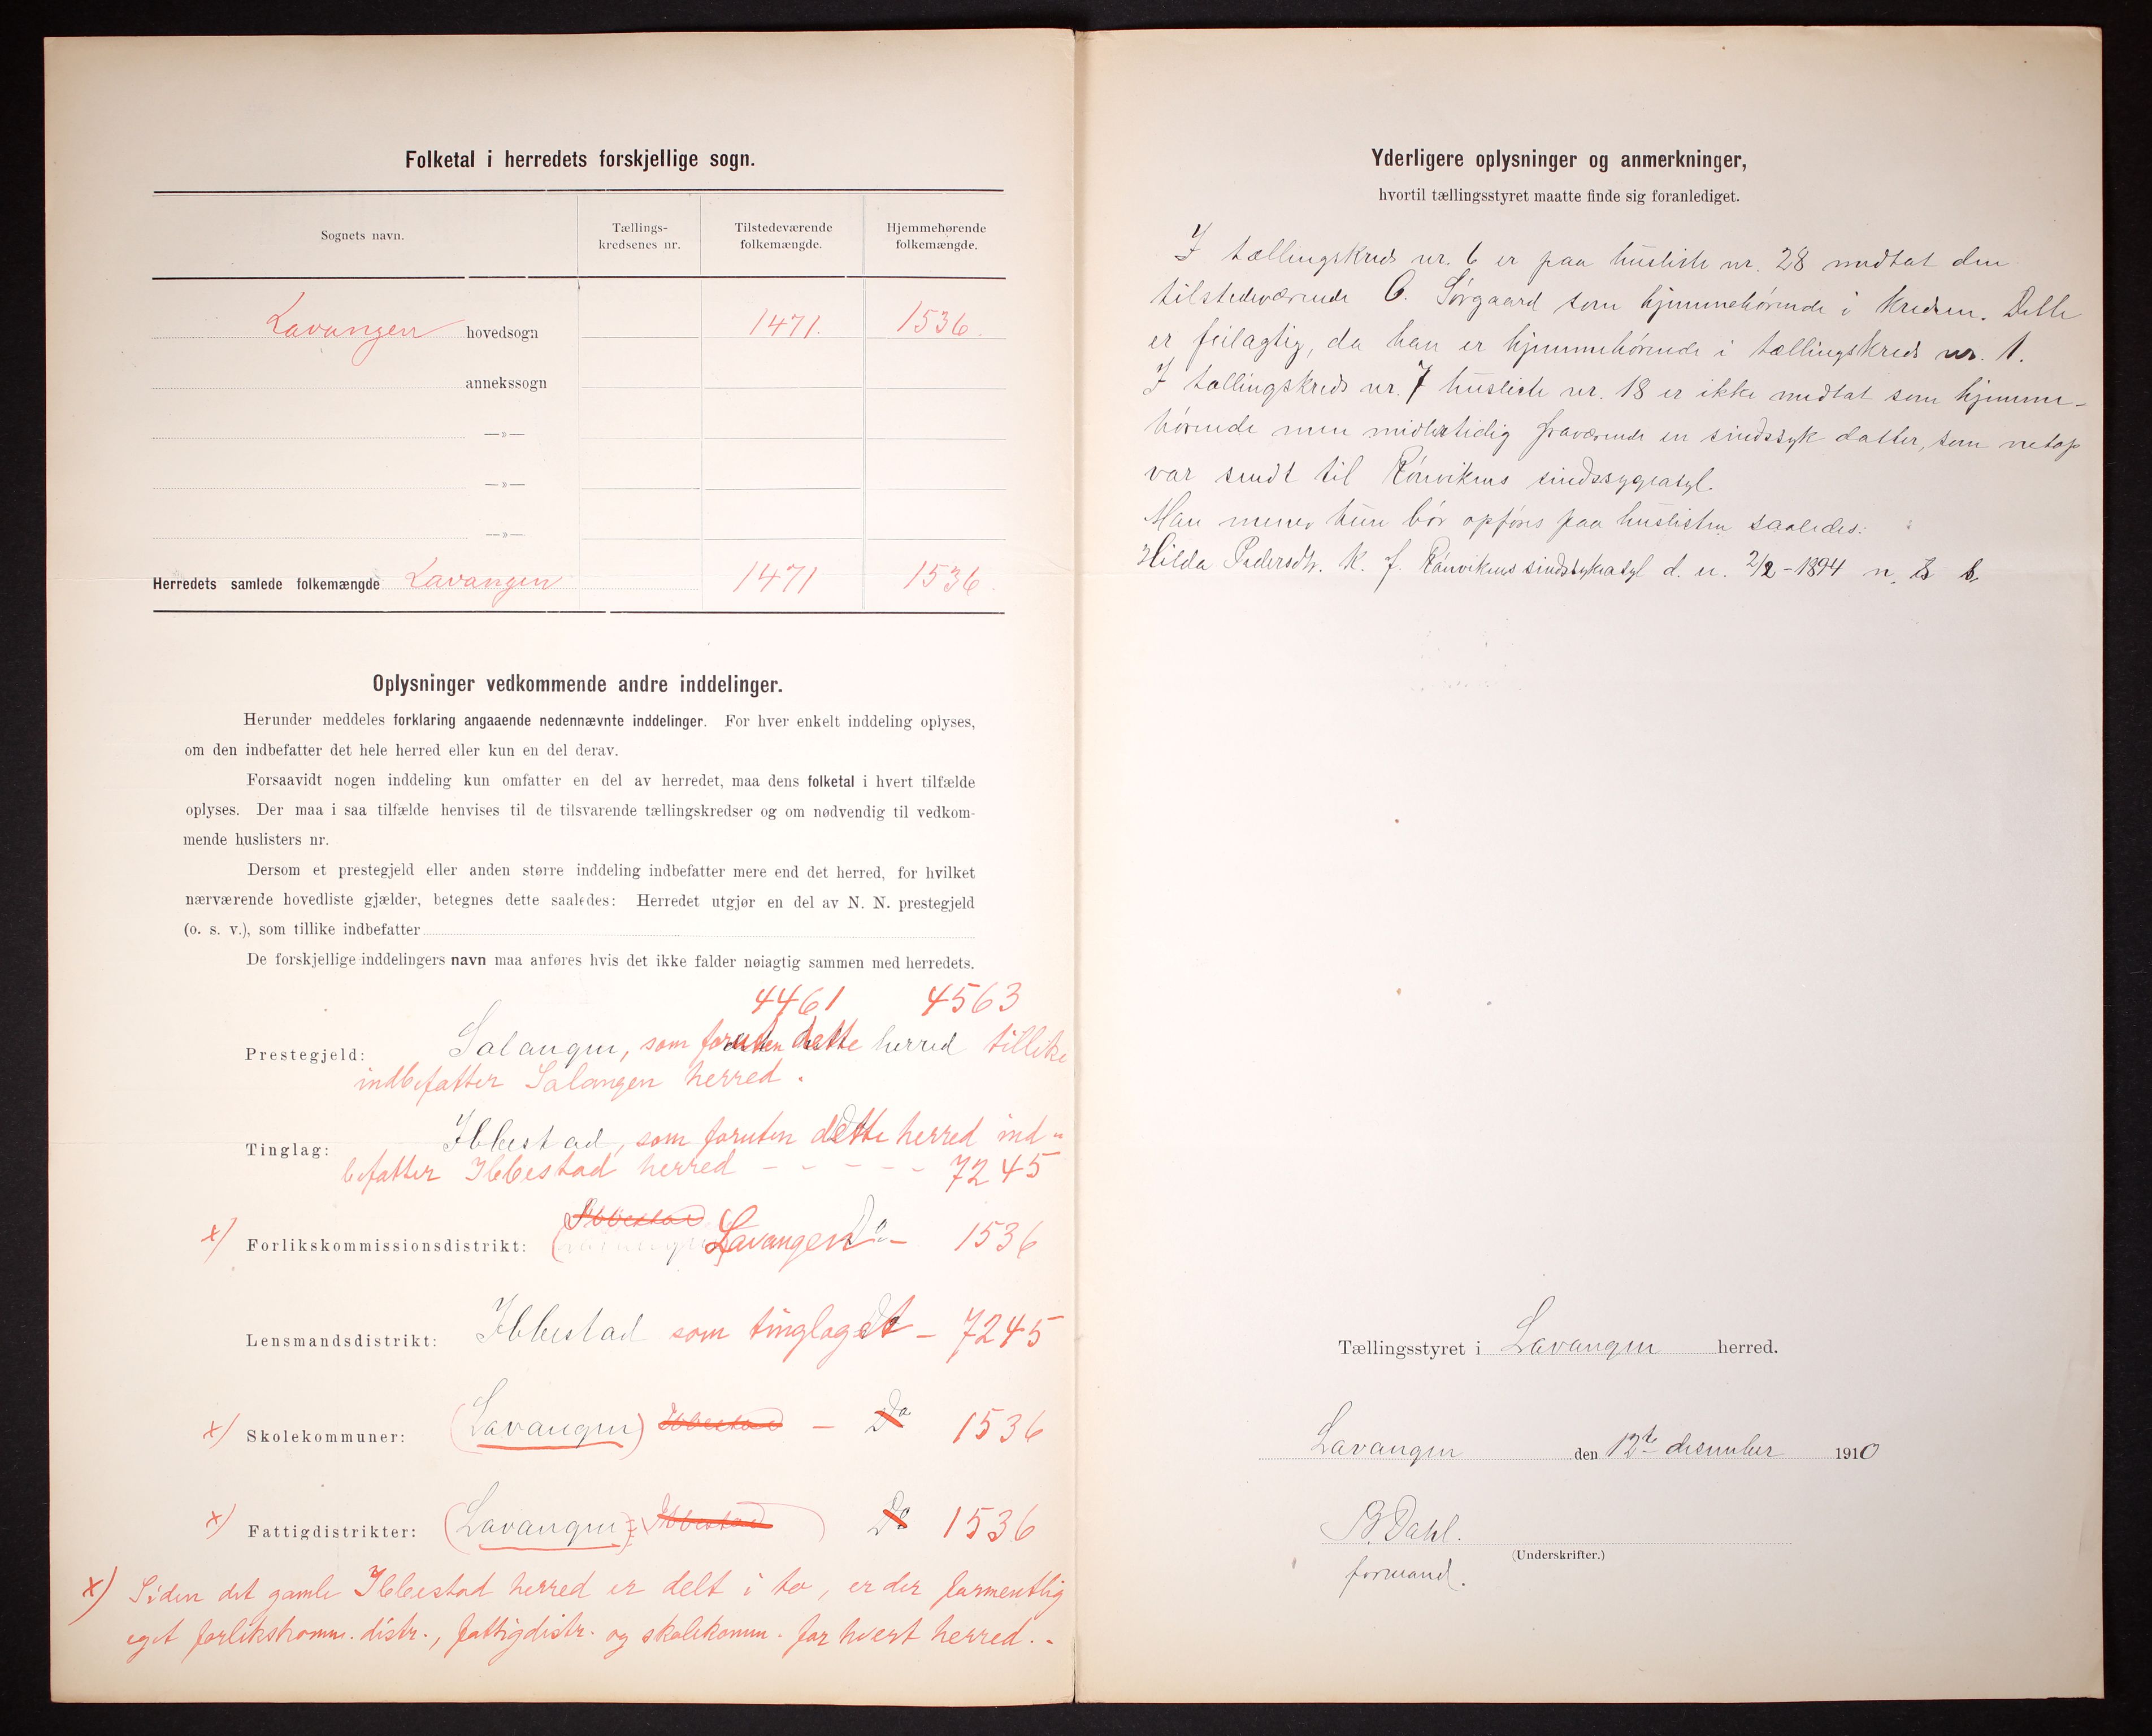 Folketal i herredets forskjellige sogn.
Sognets navn. Tællings-kredsenes nr. Tilstedeværende folkemængde. Hjemmehørende folkemængde.
Lavangen hovedsogn 1471. 1536.
annekssogn
—»—
—»—
—»—
Herredets samlede folkemængde Lavangen 1471 1536.
Oplysninger vedkommende andre inddelinger.
Herunder meddeles forklaring angaaende nedennævnte inddelinger. For hver enkelt inddeling oplyses,
om den indbefatter det hele herred eller kun en del derav.
Forsaavidt nogen inddeling kun omfatter en del av herredet, maa dens folketal i hvert tilfælde
oplyses. Der maa i saa tilfælde henvises til de tilsvarende tællingskredser og om nødvendig til vedkom-
mende huslisters nr.
Dersom et prestegjeld eller anden større inddeling indbefatter mere end det herred, for hvilket
nærværende hovedliste gjælder, betegnes dette saaledes: Herredet utgjør en del av N. N. prestegjeld
(o. s. v.), som tillike indbefatter
De forskjellige inddelingers navn maa anføres hvis det ikke falder nøiagtig sammen med herredets.
4461 4563
Prestegjeld: Salangen, som foruten dette herred tillike
indbefatter Salangen herred.
Tinglag: Ibbestad, som foruten dette herred ind-
befatter Ibbestad herred - - - - - 7245
x) Forlikskommissionsdistrikt: Ibbestad Lavangen Do - 1536
Lensmandsdistrikt: Ibbestad som tinglaget - 7245
x) Skolekommuner: (Lavangen) Ibbestad - Do 1536
x) Fattigdistrikter: (Lavangen) Ibbestad Do 1536
x) Siden det gamle Ibbestad herred er delt i to, er der formentlig
eget forlikskomm. distr., fattigdistr. og skolekomm. for hvert herred.-
Yderligere oplysninger og anmerkninger,
hvortil tællingsstyret maatte finde sig foranlediget.
I tællingskreds nr. 6 er paa husliste nr. 28 medtat den
tilstedeværende O. Sørgaard som hjemmehørende i kredsen. Dette
er feilagtig, da han er hjemmehørende i tællingskreds nr. 1.
I tællingskreds nr. 7 husliste nr. 18 er ikke medtat som hjemme-
hørende men midlertidig fraværende en sindssyk datter, som netop
var sendt til Rønvikens sindssygeasyl.
Man mener hun bør opføres paa huslisten saaledes:
Hilda Pedersdtr. k. f. Rønvikens sindssykeasyl d. u. 2/2-1894 n.
Tællingsstyret i Lavangen herred.
Lavangen den 12te desember 1910
B. Dahl.
(Underskrifter.)
formand.